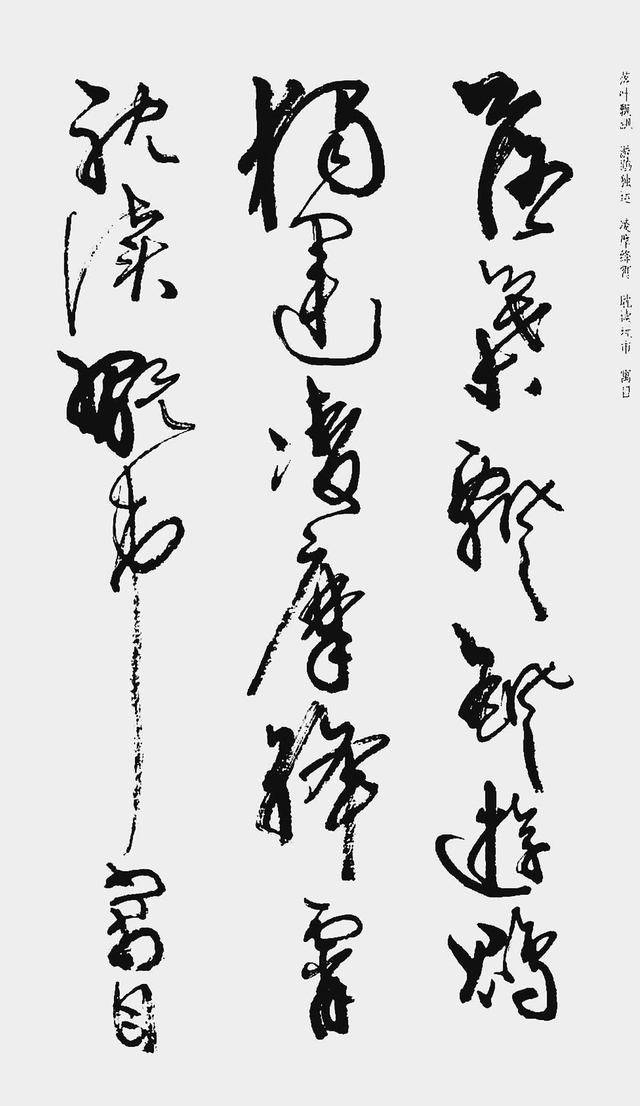 落叶飘飖 游鹍独运 凌摩绛霄 耽读玩市 寓目
落葉飄颻遊鵾
獨運凌摩絳霄
耽讀翫市寓目